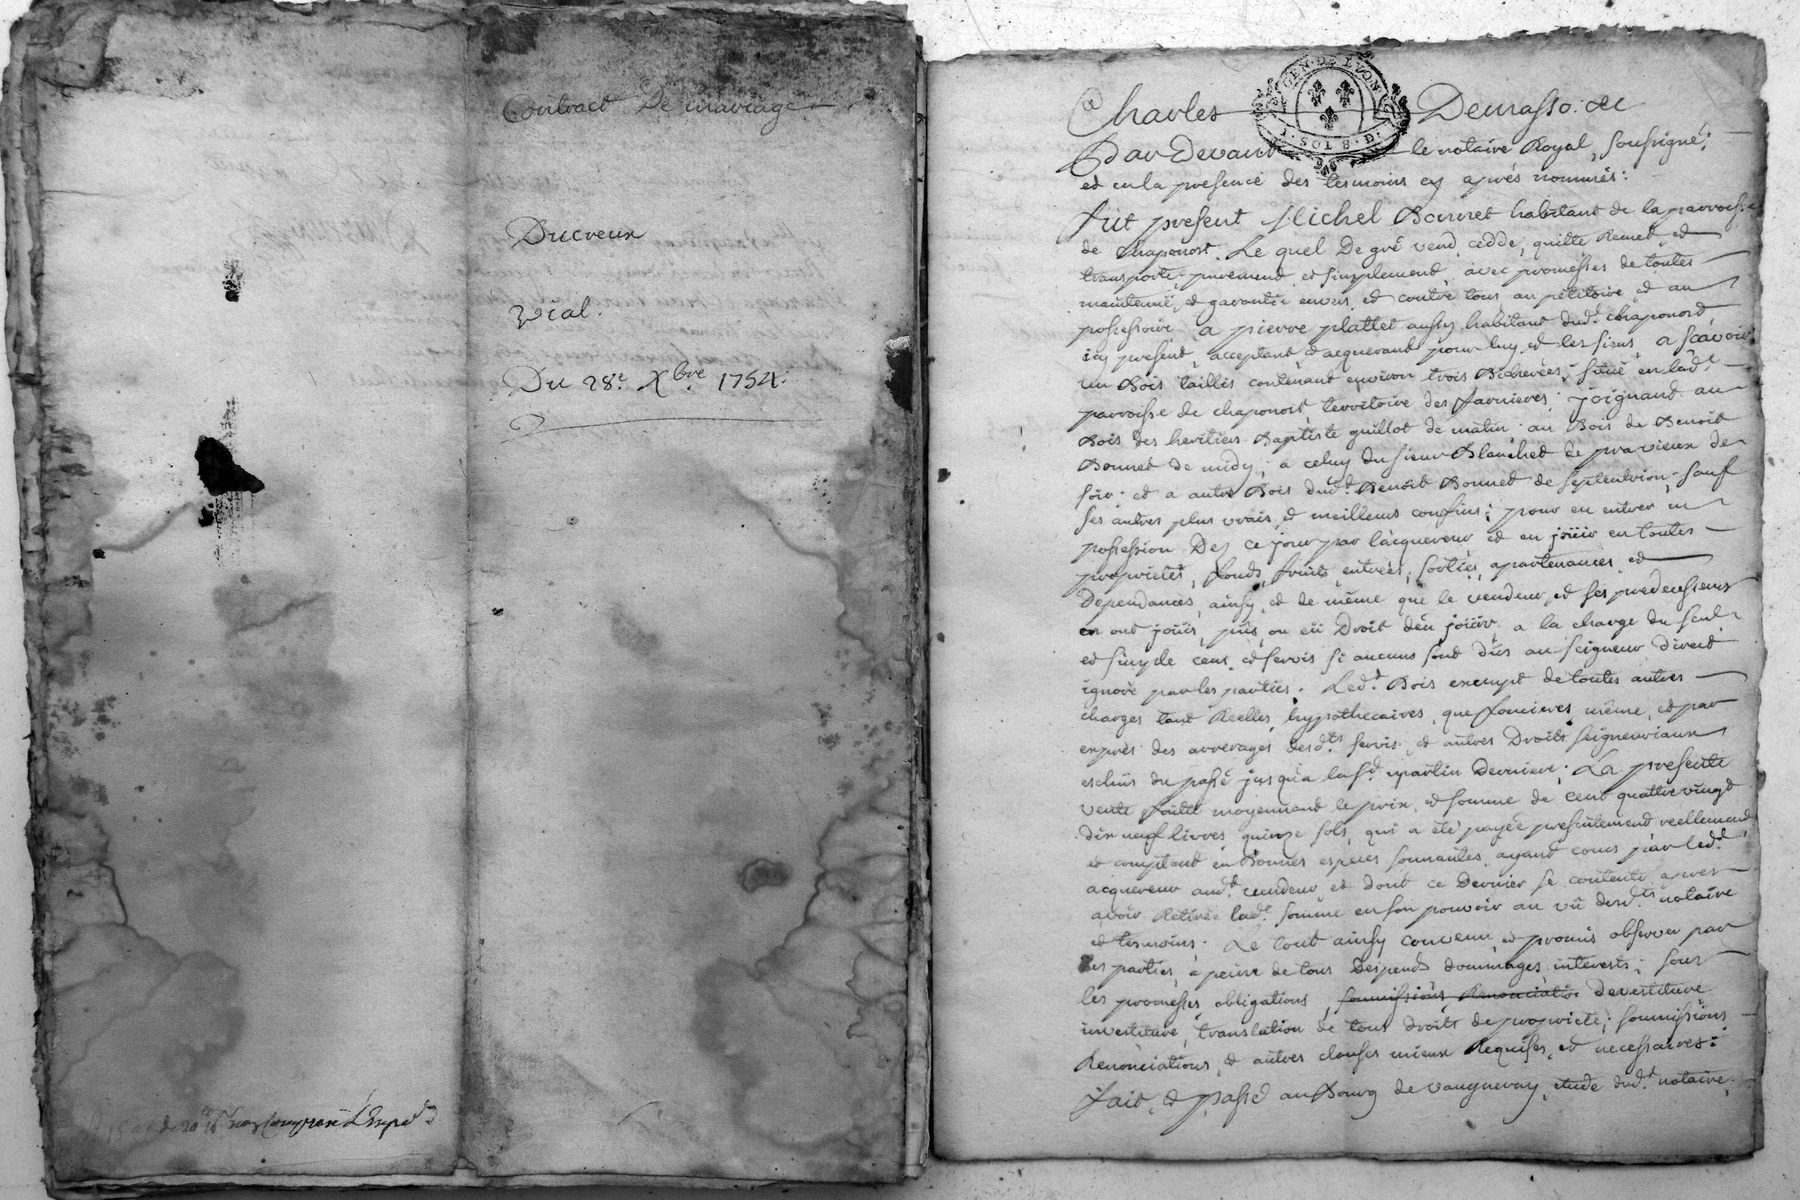 Contract De mariage
Ducreux
Vial.
Du 28.e Xbre 1754.
GEN. DE LYON
1. SOL 8. D.
Charles Demasso. de
Par Devant le notaire Royal, soussigné:
et en la presence des tesmoins cy aprés nommés:
fut present Michel Bonnet habitant de la parroisse
de Chaponost. Le quel De gré vend, cedde, quitte Remet, et
transporte, purement, et simplement, avec promesses de toutes
maintenüe, et garantie envers, et contre tous, au pétitoire, et au
possessoire, a pierre plattet aussy habitant dud.t chaponost,
icy présent, acceptant et acquerant pour luy et les siens, a sçavoir
un Bois taillis contenant environ trois Bicherées, situé en lad.e
parroisse de chaponost territoire des farnieres; joignant au
Bois des heritiers Baptiste guillot de matin. au Bois de Benoit
Bonnet de midy; a celuy du sieur Blanchet de pravieux de
soir. et a autre Bois dud.t Benoit Bonnet de septentrion, sauf
ses autres plus vrais, et meilleurs confins; pour en entrer en
possession Dez ce jour par lácquereur et en joüir en toutes
proprietés, fonds, fruits, entrées, sorties, apartenances, et
Dependances, ainsy, et de même que le vendeur, et ses predecesseurs
en ont joüis, pûs, ou eü Droit d'en joüir, a la charge du seul
et simple cens, et servis si aucuns sont dûs au seigneur direct
ignoré par les parties. Led.t Bois exempt de toutes autres
charges tant Reelles, hypothecaires, que foncieres même, et par
exprès des arrerages desd.ts servis, et autres Droits seigneuriaux
eschûs du passé jusqu'a la S.t martin Derniere; La presente
vente faitte moyennant le prix, et somme de cent quattre vingt
dix neuf livres, quinze sols, qui a été payée presentement reellement
et comptant en Bonnes especes sonnantes, ayant cours par led.t
acquereur aud.t vendeur et dont ce Dernier se contente apres
avoir Retirée lad.e somme en son pouvoir au vû desd.ts notaire
et tesmoins. Le tout ainsy convenu, et promis observer par
les parties, à peine de tous Despends dommages interests; sous
les promesses, obligations, soumissions Renonciations devestiture
investiture, translation de tous droits de proprieté, soumissions
Renonciations, et autres clauses mieux Requises, et necessaires:
fait, et passé au Bourg de vaugneray, etude dud.t notaire,